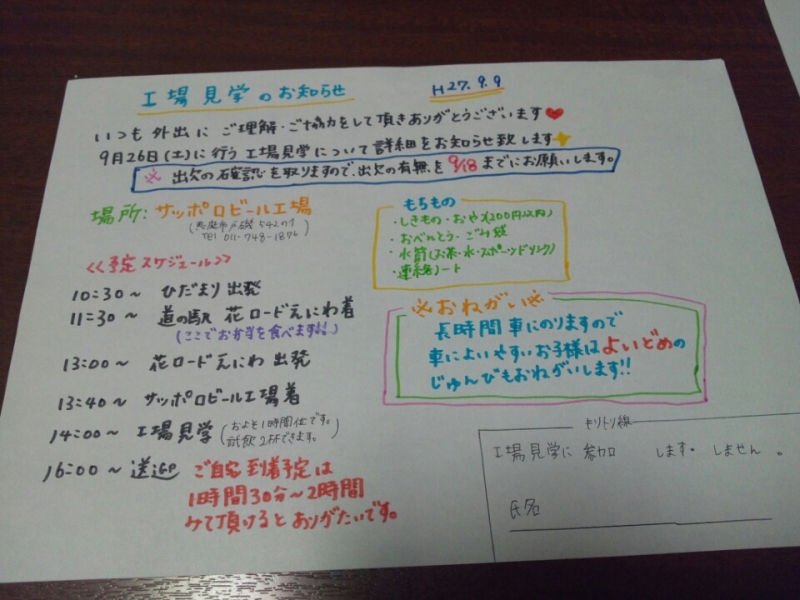 工場見学のお知らせ
H27.9.9
いつも外出にご理解・ご協力をして頂きありがとうございます
9月26日(土)に行う工場見学について詳細をお知らせ致します
※ 出欠の確認を取りますので、出欠の有無を9/18までにお願いします。
場所:サッポロビール工場
(恵庭市戸磯542の1
TEL 011-748-1876)
<<予定スケジュール>>
10:30~ ひだまり出発
11:30~ 道の駅 花ロードえにわ着
(ここでお弁当を食べます!!)
13:00~ 花ロードえにわ 出発
13:40~ サッポロビール工場着
14:00~ 工場見学(およそ1時間位です。
試飲2杯できます。)
16:00~ 送迎 ご自宅到着予定は
1時間30分~2時間
みて頂けるとありがたいです。
もちもの
・しきもの・おやつ(200円以内)
・おべんとう・ごみ袋
・水筒(お茶・水・スポーツドリンク)
・連絡ノート
※おねがい※
長時間車にのりますので
車によいやすいお子様はよいどめの
じゅんびもおねがいします!!
キリトリ線
工場見学に 参加 します・しません。
氏名